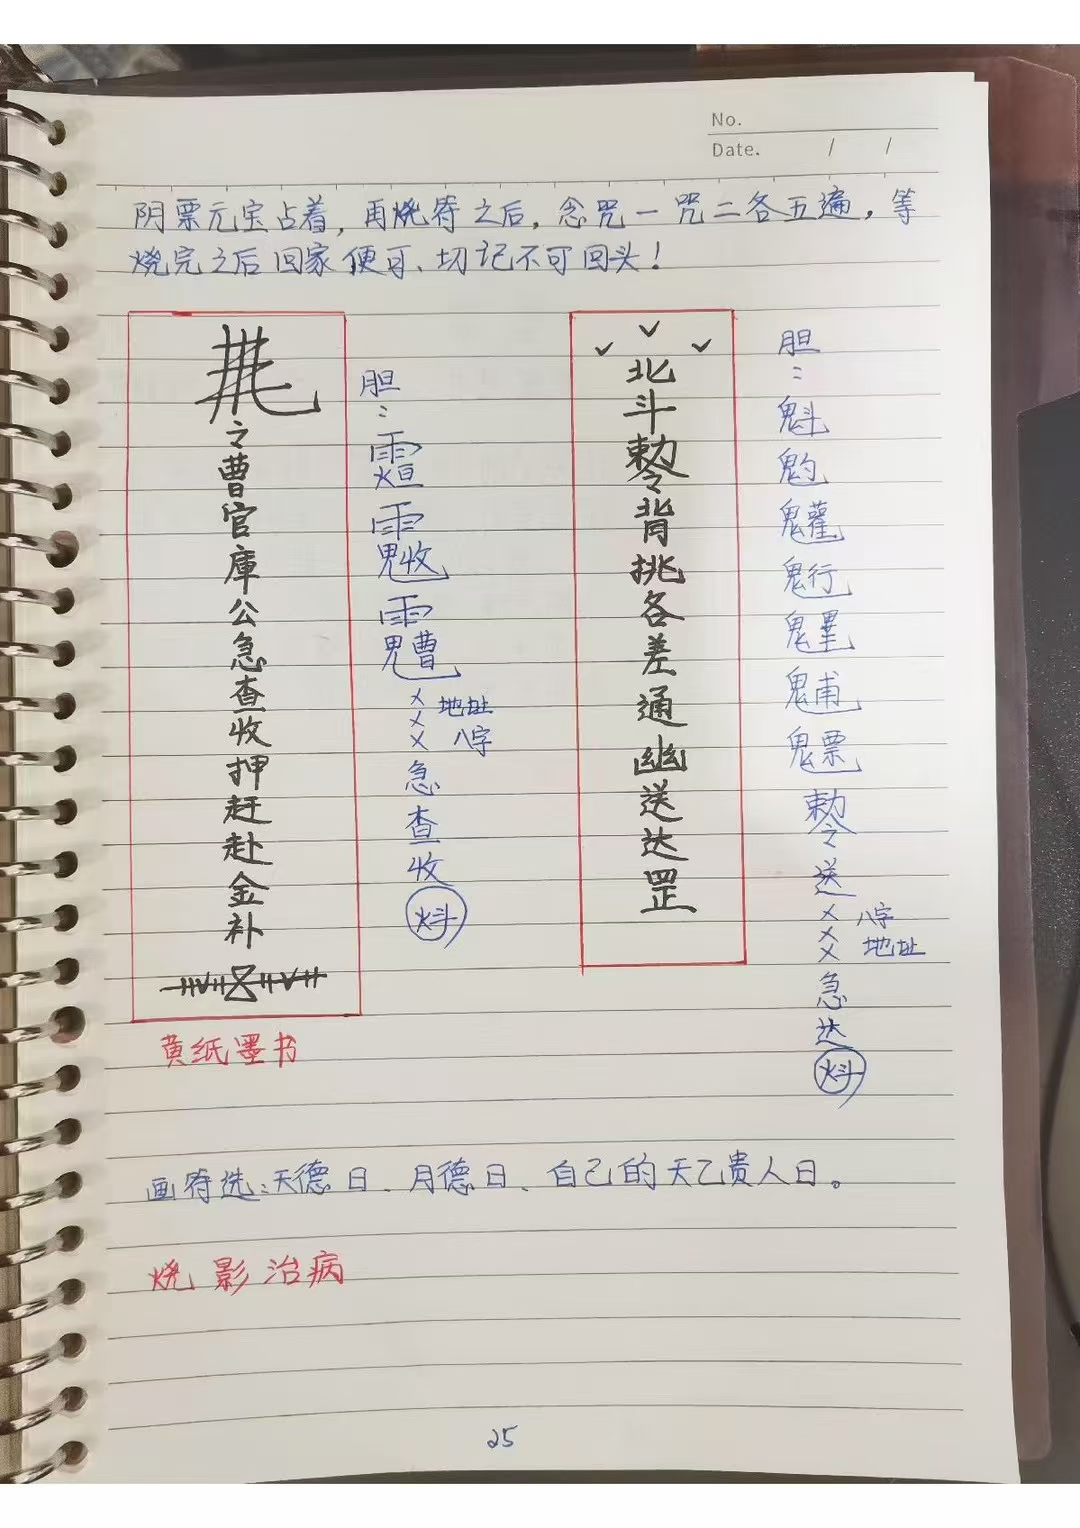 No.
Date. / /
阴票元宝占着，再烧符之后，念咒一咒二各五遍，等
烧完之后回家便可、切记不可回头！
令曹官库公急查收押赶赴金补
胆：
×××地址
八字
急查收
北斗敕令背挑各差通幽送达罡
胆：
敕令送×××八字
地址
急达
黄纸墨书
画符选：天德日、月德日、自己的天乙贵人日。
烧影治病
25